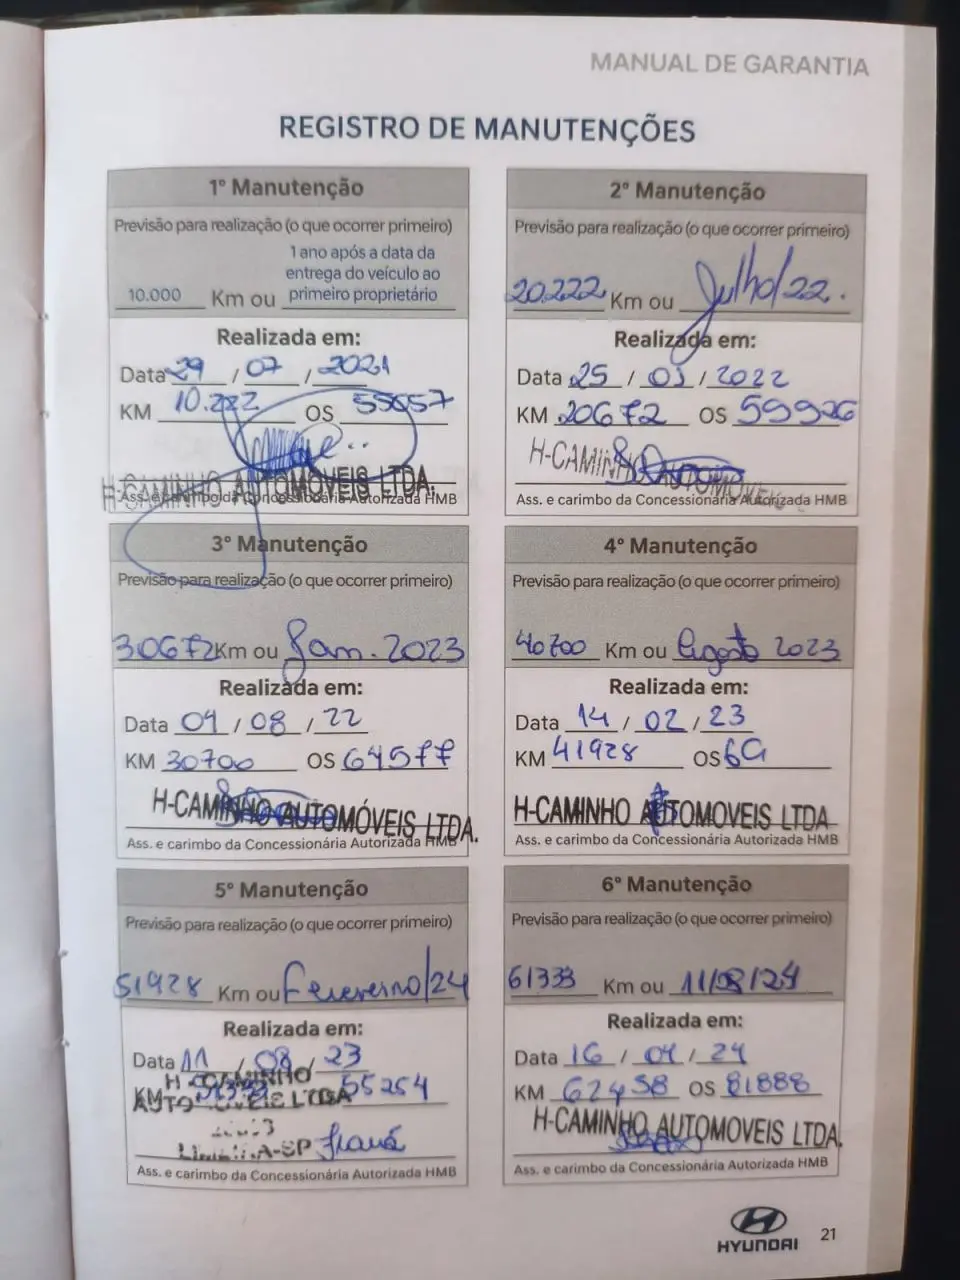 MANUAL DE GARANTIA
REGISTRO DE MANUTENÇÕES
1º Manutenção
Previsão para realização (o que ocorrer primeiro)
1 ano após a data da
entrega do veículo ao
10.000 Km ou primeiro proprietário
Realizada em:
Data 29 / 07 / 2021
KM 10.222 OS 55657
H-CAMINHO AUTOMÓVEIS LTDA.
Ass. e carimbo da Concessionária Autorizada HMB
2º Manutenção
Previsão para realização (o que ocorrer primeiro)
20.222 Km ou Julho/22.
Realizada em:
Data 25 / 01 / 2022
KM 20672 OS 59926
H-CAMINHO AUTOMOVEIS
Ass. e carimbo da Concessionária Autorizada HMB
3º Manutenção
Previsão para realização (o que ocorrer primeiro)
30672 Km ou Jan. 2023
Realizada em:
Data 09 / 08 / 22
KM 30700 OS 64577
H-CAMINHO AUTOMÓVEIS LTDA.
Ass. e carimbo da Concessionária Autorizada HMB
4º Manutenção
Previsão para realização (o que ocorrer primeiro)
40700 Km ou Agosto 2023
Realizada em:
Data 14 / 02 / 23
KM 41928 OS 69
H-CAMINHO AUTOMOVEIS LTDA
Ass. e carimbo da Concessionária Autorizada HMB
5º Manutenção
Previsão para realização (o que ocorrer primeiro)
51928 Km ou Fevereiro/24
Realizada em:
Data 11 / 08 / 23
KM 51333 55254
H-CAMINHO
AUTOMOVEIS LTDA
LIMEIRA-SP
Ass. e carimbo da Concessionária Autorizada HMB
6º Manutenção
Previsão para realização (o que ocorrer primeiro)
61333 Km ou 11/08/24
Realizada em:
Data 16 / 04 / 24
KM 62438 OS 81888
H-CAMINHO AUTOMOVEIS LTDA.
Ass. e carimbo da Concessionária Autorizada HMB
HYUNDAI
21